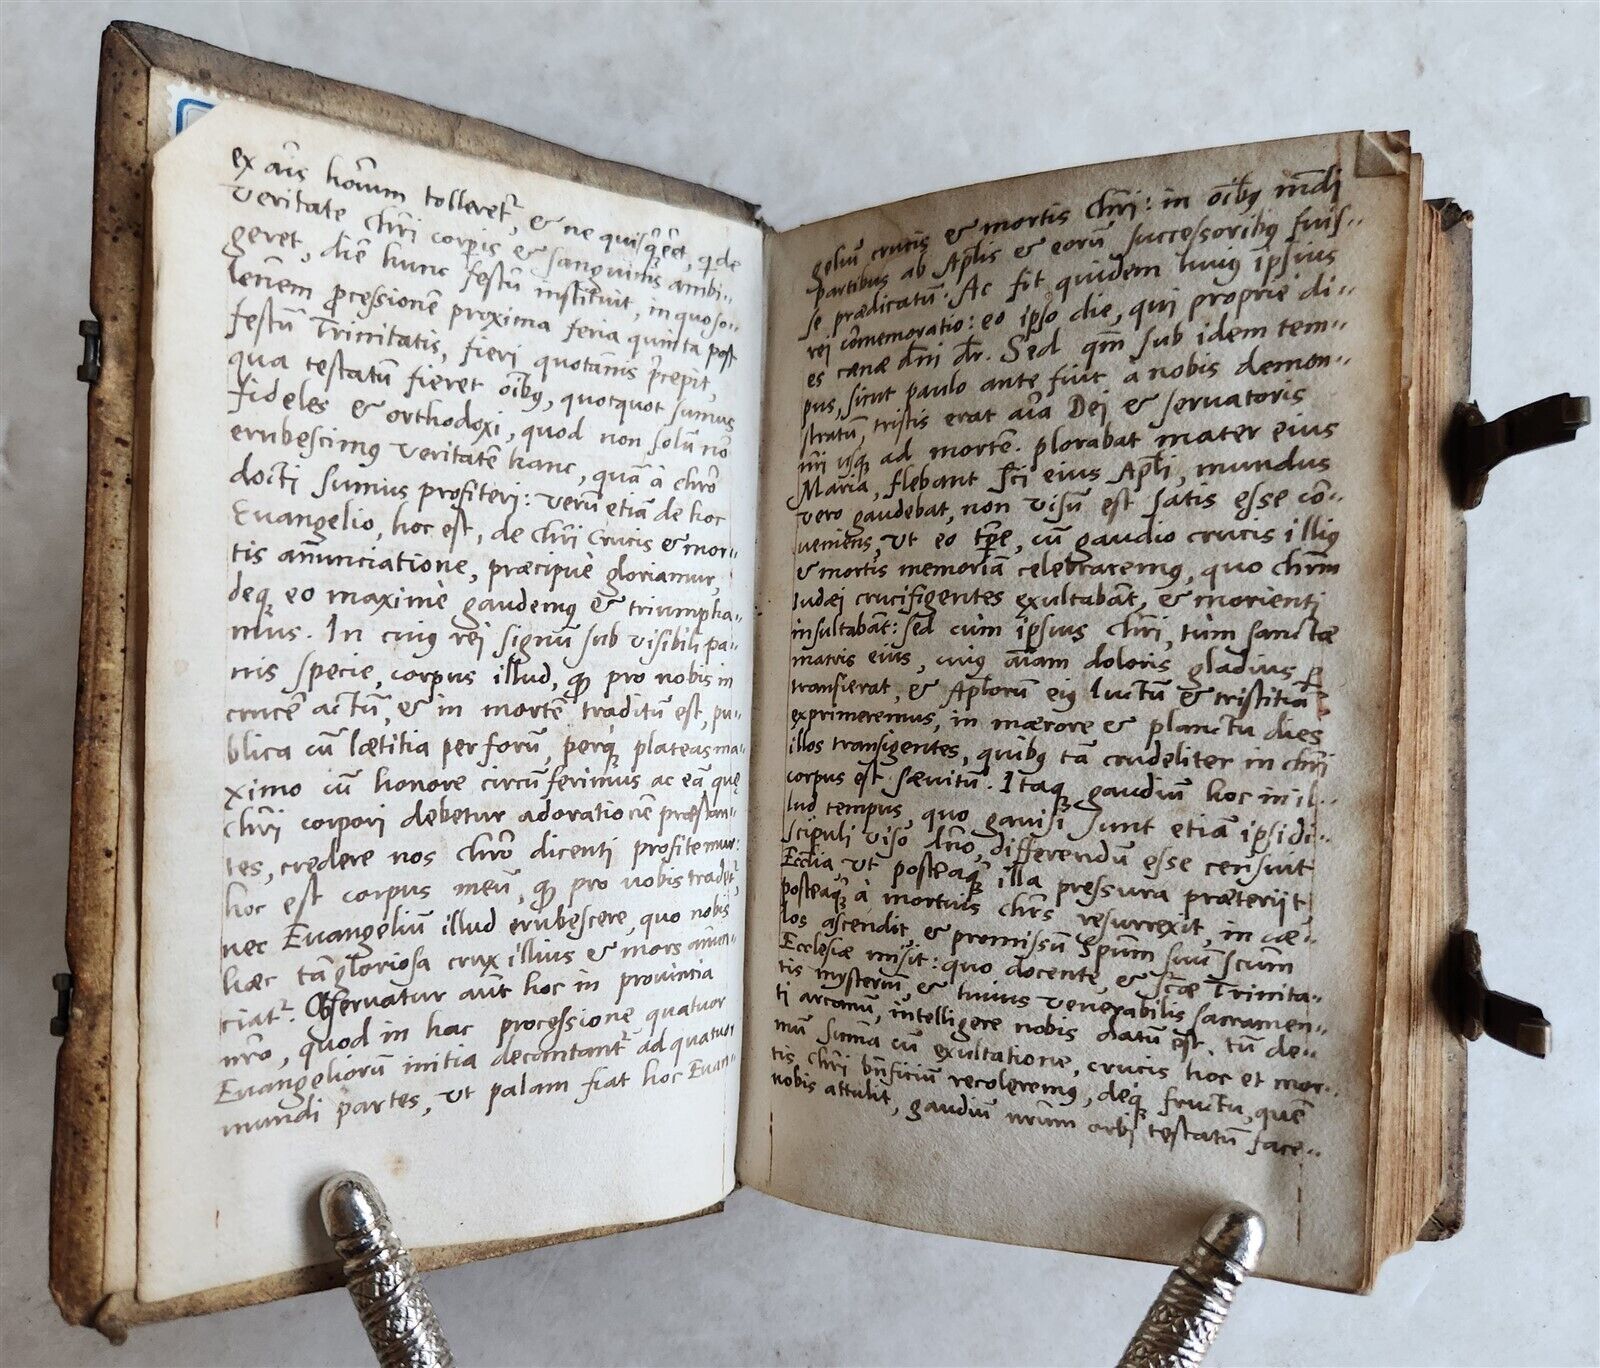 ex aīs homīum tolleret᷑, & ne quisq̃ eēt, qi de
veritate chr̄i corpis & sanguinis ambi-
geret, diē hunc festū instituit, in quo so-
lēnem p̄cessionē proxima feria quinta post
festū Trinitatis, fieri quotānis p̄cepit,
qua testatū fieret oīb9, quotquot sumus
fideles & orthodoxi, quod non solū nō
erubescim9 veritatē hanc, quā à chr̄o
docti sumus profiteri: verū etiā de hoc
Euangelio, hoc est, de chr̄i Crucis & mor-
tis an̄unciatione, præcipuè gloriamur,
deq; eo maximè gaudem9 & triumpha-
mus. In cui9 rei signū sub visibili pa-
nis specie, corpus illud, qd̄ pro nobis in
crucē actū, & in mortē traditū est, pu-
blica cū lætitia per forū, perq; plateas ma-
ximo cū honore circūferimus ac eā quę
chr̄i corpori debetur adorationē præstan-
tes, credere nos chr̄o dicenti profitemur:
hoc est corpus meū, qd̄ pro vobis tradet᷑,
nec Euangeliū illud erubescere, quo nobis
hæc tā gloriosa crux illius & mors an̄un-
ciat᷑. Obseruatur aūt hoc in prouincia
nr̄o, quod in hac processione quatuor
Euangeliorū initia decantant᷑ ad quatuor
mundi partes, ut palam fiat hoc Euan-
geliū crucis & mortis chr̄i: in oīb9 mūdi
partibus ab Aptlis & eorū successorib9 fuis-
se prædicatū. Ac fit quidem hui9 ipsius
rei cōmemoratio: eo ipso die, qui proprie di-
es cænæ dn̄i dr̄. Sed qm̄ sub idem tem-
pus, sicut paulo ante fuit à nobis demon-
stratū, tristis erat aīa Dei & seruatoris
nr̄i usq; ad mortē. plorabat mater eius
Maria, flebant sc̄i eius Aptli, mundus
vero gaudebat, non visū est satis esse cō-
ueniens, ut eo tp̄e, cū gaudio crucis illi9
& mortis memoriā celebraremq, quo chr̄m
Iudæi crucifigentes exultabāt, & morienti
insultabāt: sed cùm ipsius chr̄i, tùm sanctæ
matris eius, cui9 aīam doloris gladius p̄
transierat, & Aptlorū ei9 luctū & tristitiā
exprimeremus, in mærore & planctu dies
illos transigentes, quib9 tā crudeliter in chr̄i
corpus est sævitū. Itaq; gaudiū hoc in il-
lud tempus, quo gauisi sunt etiā ipsi di-
scipuli viso dn̄o, differendū esse censuit
Eccl̄ia, ut posteaq̃ illa pressura præteriit,
posteaq̃ à mortuis chr̄s resurrexit, in cæ-
los ascendit & promissū Sp̄um suū scūm
Ecclesiæ misit: quo docente, & sc̄æ Trinita-
tis mysteriū, & huius venerabilis sacramen-
ti arcanū, intelligere nobis datū est. tū de-
mū summa cū exultatione, crucis hoc et mor-
tis chr̄i bn̄ficiū recolerem9, deq; fructu, quē
nobis attulit, gaudiū nr̄um orbi testatū face-